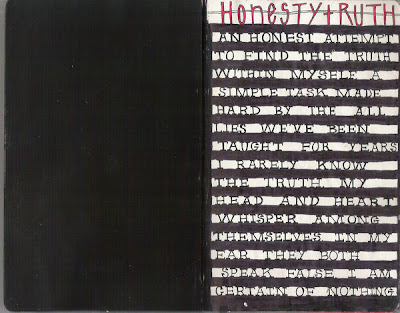 HONESTY + TRUTH
AN HONEST ATTEMPT
TO FIND THE TRUTH
WITHIN MYSELF A
SIMPLE TASK MADE
HARD BY THE ALL
LIES WE'VE BEEN
TAUGHT FOR YEARS
I RARELY KNOW
THE TRUTH MY
HEAD AND HEART
WHISPER AMONG
THEMSELVES IN MY
EAR THEY BOTH
SPEAK FALSE I AM
CERTAIN OF NOTHING